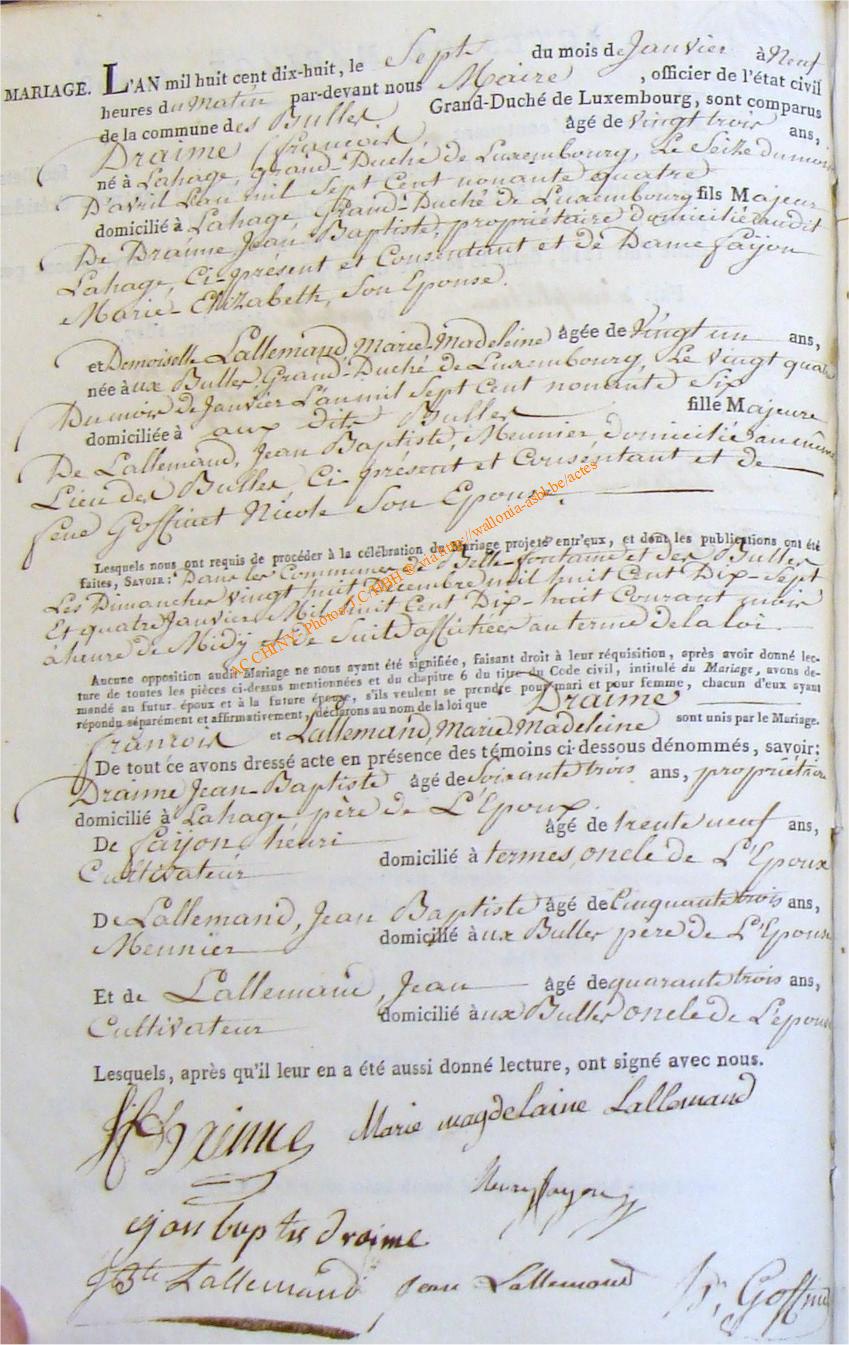 MARIAGE. L'AN mil huit cent dix-huit, le Sept du mois de Janvier à Neuf
heures du Matin par-devant nous Maire , officier de l'état civil
de la commune des Bulles Grand-Duché de Luxembourg, sont comparus
Draime François âgé de vingt trois ans,
né à Lahage, grand-Duché de Luxembourg, Le Seize du mois
D'avril L'an mil Sept Cent nonante quatre
domicilié à Lahage Grand-Duché de Luxembourg fils Majeur
De Draime Jean Baptiste, propriétaire domicilié audit
Lahage, Ci-présent et Consentant et de Dame fayon
Marie-Elizabeth, Son Epouse.
et Demoiselle Lallemand, Marie-Madeleine âgée de Vingt un ans,
née à ux Bulles Grand-Duché de Luxembourg, Le vingt quatre
Du mois de Janvier L'an mil Sept Cent nonante Six
domiciliée à aux dits Bulles fille Majeure
De Lallemand, Jean Baptiste, Meunier, domicilié au même
Lieu des Bulles Ci-présent et Consentant et de
feue Goffinet Nicole Son Epouse.
Lesquels nous ont requis de procéder à la célébration du Mariage projeté entr'eux, et dont les publications ont été
faites, SAVOIR: Dans les Communes de Bellefontaine et des Bulles
Les Dimanches vingt huit Décembre mil huit Cent Dix-Sept
Et quatre Janvier Mil huit Cent Dix-huit Courant mois
à heure de Midy et de Suite affichées au terme de la loi
Aucune opposition audit Mariage ne nous ayant été signifiée, faisant droit à leur réquisition, après avoir donné lec-
ture de toutes les pièces ci-dessus mentionnées et du chapitre 6 du titre du Code civil, intitulé du Mariage, avons de-
mandé au futur époux et à la future épouse, s'ils veulent se prendre pour mari et pour femme, chacun d'eux ayant
répondu séparément et affirmativement, déclarons au nom de la loi que Draime
François et Lallemand, Marie Madeleine sont unis par le Mariage.
De tout ce avons dressé acte en présence des témoins ci-dessous dénommés, savoir:
Draime Jean-Baptiste âgé de Soixante trois ans, propriétaire
domicilié à Lahage père de L'Epoux.
De fayon hénri âgé de trente neuf ans,
Cultivateur domicilié à termes, oncle de L'Epoux
De Lallemand, Jean Baptiste âgé de Cinquante trois ans,
Meunier domicilié à ux Bulles père de L'Epouse
Et de Lallemand, Jean âgé de quarante trois ans,
Cultivateur domicilié à ux Bulles oncle de L'épouse
Lesquels, après qu'il leur en a été aussi donné lecture, ont signé avec nous.
Draime Marie magdelaine Lallemand
Henry fayon
jan baptis draime
Lallemand Jean Lallemand
ACCHINY- Photos JC/HBH © via http://wallonia-asbl.be/actes